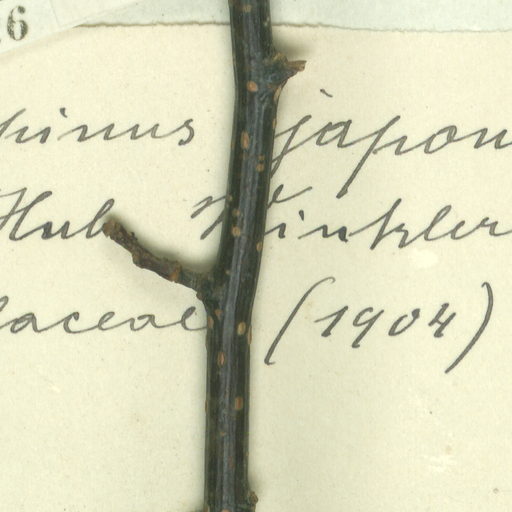 6
pinus japon
Hub Winkler
laceae (1904)